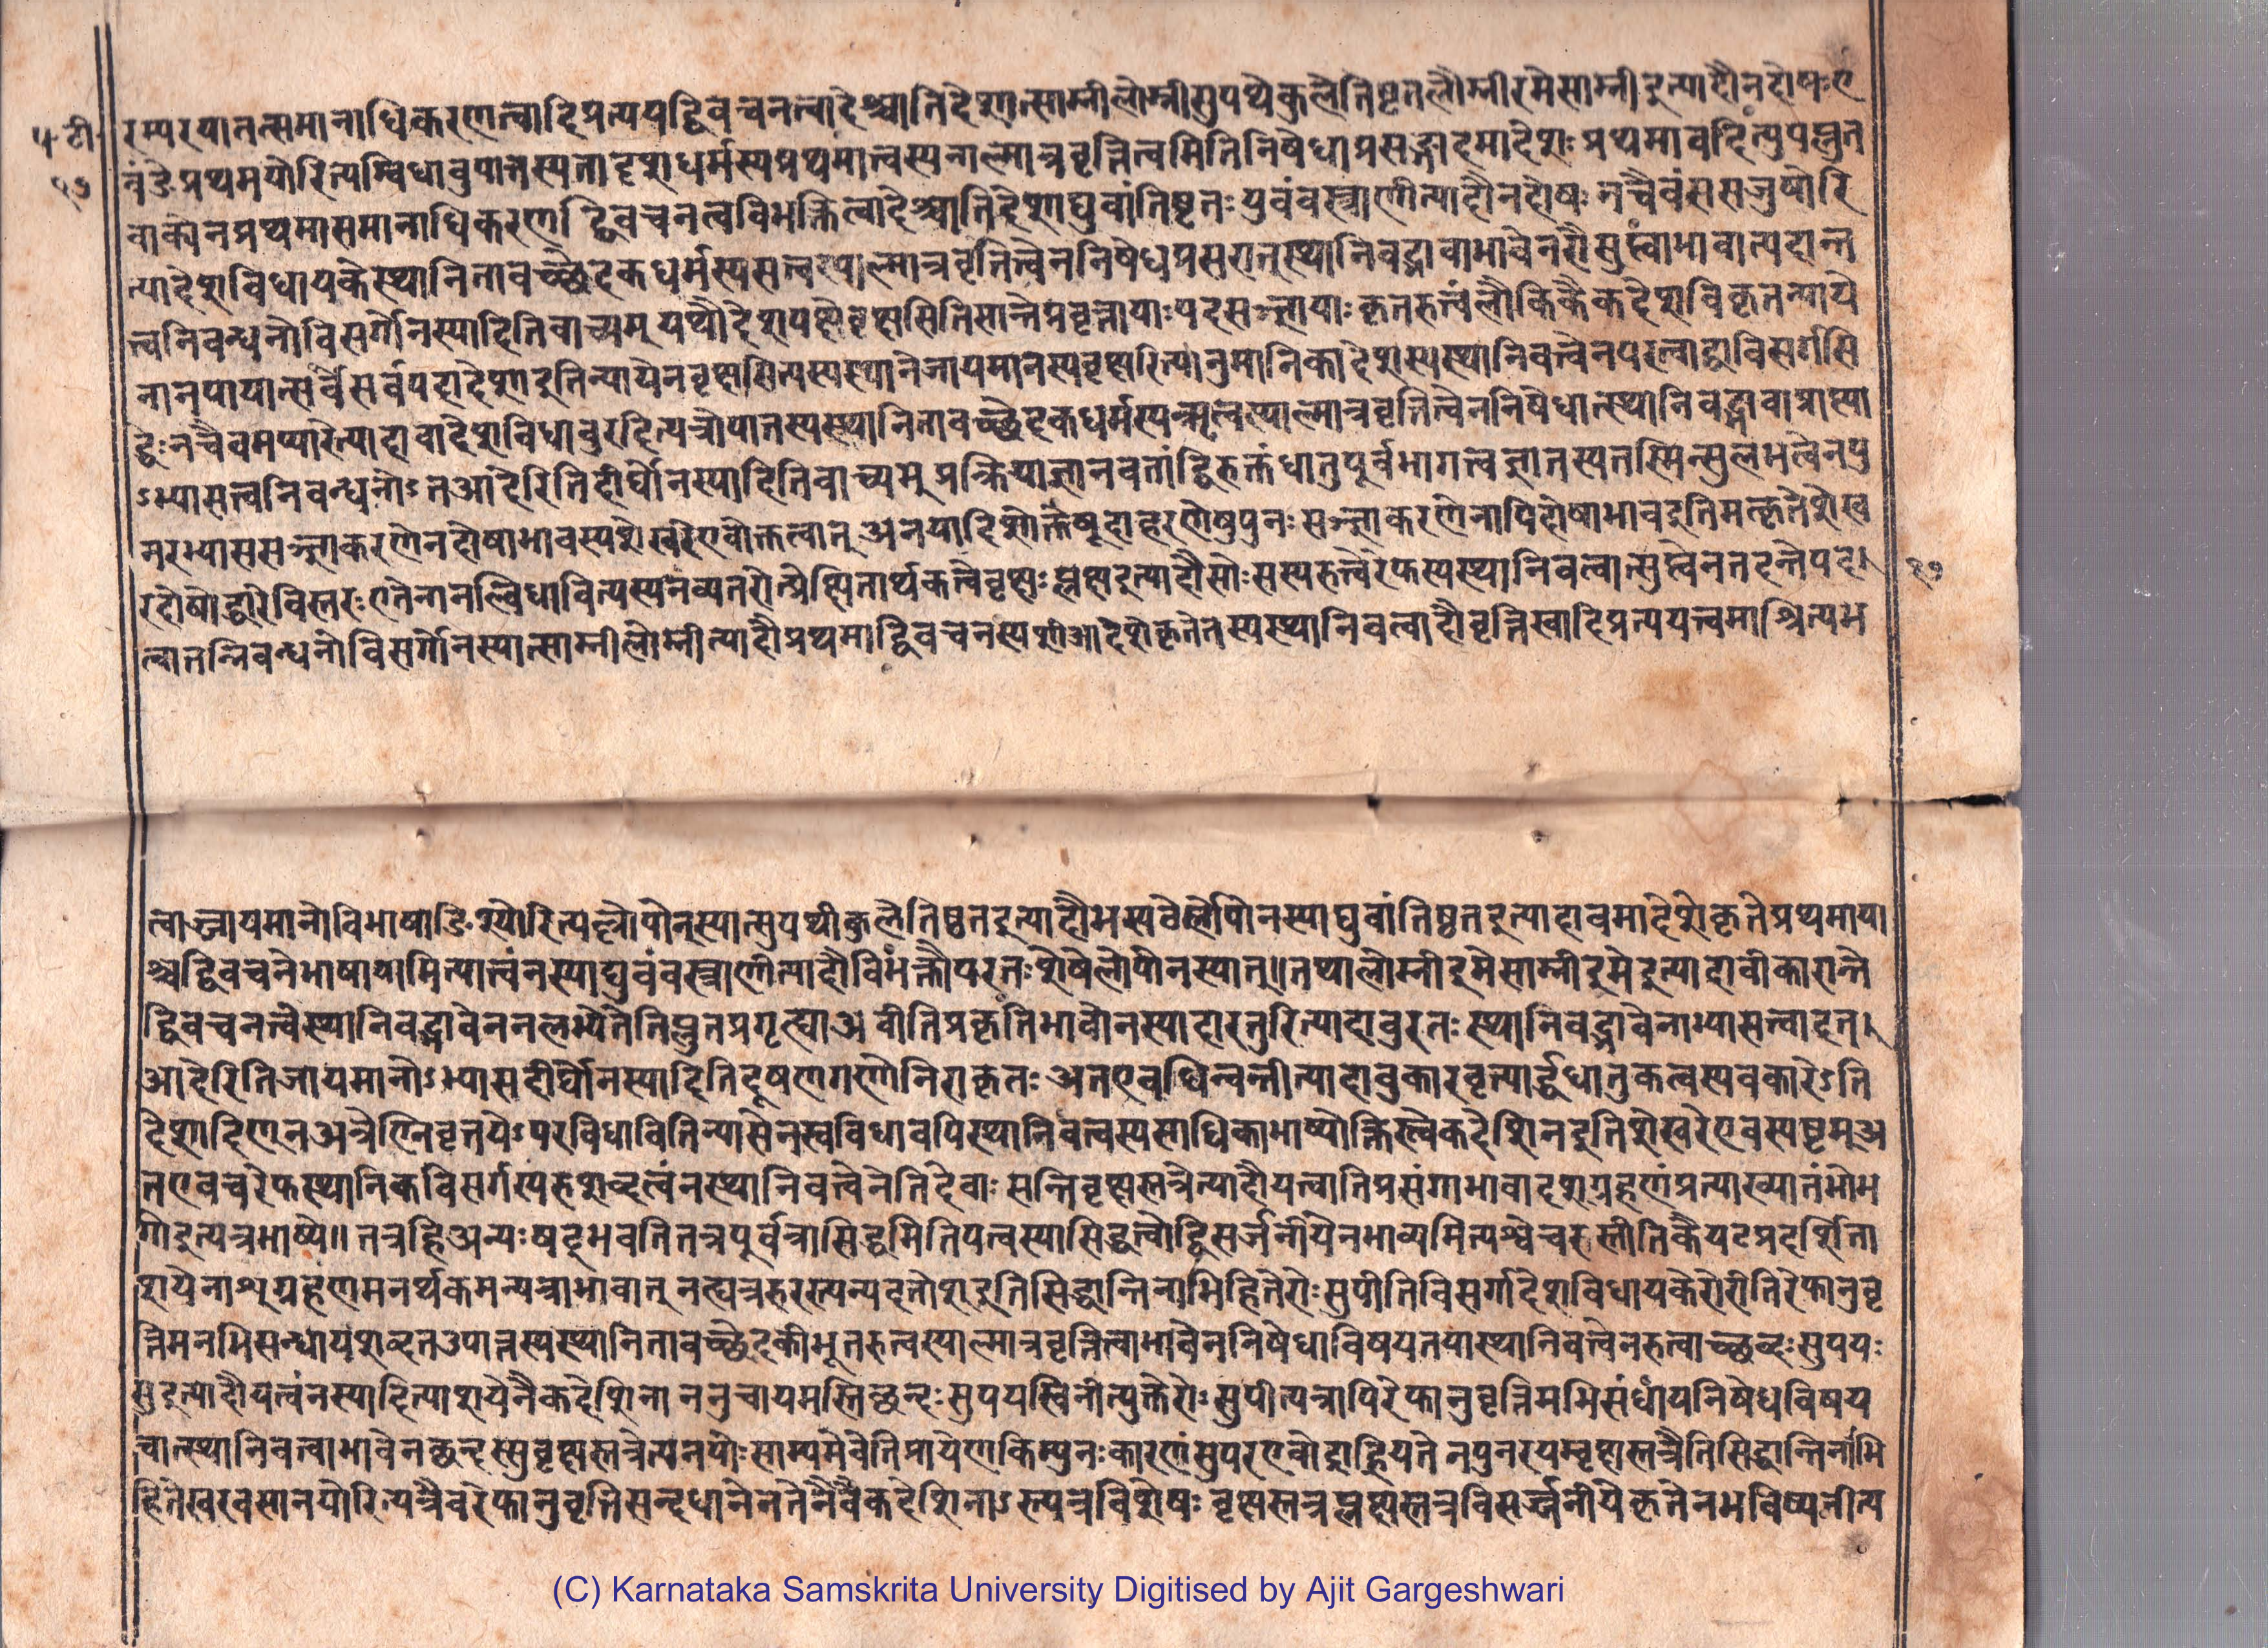 प॰टी॰
१७
रम्परयातत्समानाधिकरणत्वादिप्रत्ययद्विवचनत्वादेश्चातिदेशात्साम्नीलोम्नीसुपथेकुलेतिष्टतलोम्नीरमेसाम्नीइत्यादौनदोषःए
नंङेप्रथमयोरित्यम्विधावुपात्तस्यतादृशधर्मस्यप्रथमात्वस्यनाल्मात्रवृत्तित्वमितिनिषेधाप्रसङ्गादमादेशःप्रथमावदित्युपप्लुत
वाक्येनप्रथमासमानाधिकरणद्विवचनत्वविभक्तित्वादेश्चातिदेशाद्युवांतिष्टतःयुवंवस्त्राणीत्यादौनदोषःनचैवंससजुषोरि
त्यादेशविधायकेस्थानितावच्छेदकधर्मस्यसत्वस्याल्मात्रवृत्तित्वेननिषेधप्रसरात्स्थानिवद्भावाभावेनरोसुप्त्वाभावात्पदान्त
त्वनिबन्धनोविसर्गोनस्यादितिवाच्यम्यथोद्देशपक्षेवृक्षसितिसान्तेप्रवृत्तायाःपदसञ्ज्ञायाःकृतरुत्वेलौकिकैकदेशविकृतन्याये
नानपायात्सर्वेसर्वपदादेशाइतिन्यायेनवृक्षसित्यस्यस्थानेजायमानस्यवृक्षरित्यानुमानिकादेशस्यस्थानिवत्त्वेनपदत्वाद्वाविसर्गसि
द्धिःनचैवमप्यारेत्यादावादेशविधावुरदित्यत्रोपात्तस्यस्थानितावच्छेदकधर्मस्यऋत्वस्याल्मात्रवृत्तित्वेननिषेधात्स्थानिवद्भावाप्राप्त्या
ऽभ्यासत्वनिबन्धनोऽतआदेरितिदीर्घोनस्यादितिवाच्यम्प्रक्रियाज्ञानवतांद्विरुक्तधातुपूर्वभागत्वज्ञानस्यतस्मिन्सुलभत्वेनपु
नरभ्याससञ्ज्ञाकरणेनदोषाभावस्यशेखरेएवोक्तत्वात्अनयादिशोक्तेषूदाहरणेषुपुनःसञ्ज्ञाकरणेनापिदोषाभावइतिमत्कृतेशेख
रदोषोद्धारेविस्तरःएतेनानल्विधावित्यस्यनव्यतरोत्प्रेक्षितार्थकत्वेवृक्षःप्लक्षइत्यादौसोःसस्यरुत्वेरेफस्यस्थानिवत्वात्सुप्त्वेनतदन्तेपद।
१७
त्वातन्निबन्धनोविसर्गोनस्यात्साम्नीलोम्नीत्यादौप्रथमाद्विवचनस्यशीआदेशेकृतेतस्यस्थानिवत्वादौवृत्तिस्वादिप्रत्ययत्वमाश्रित्यभ
त्वाज्जायमानोविभाषाङिश्योरित्यल्लोपोनस्यात्सुपथीकुलेतिष्ठतइत्यादौभस्यटेर्लोपोनस्याद्युवांतिष्ठतइत्यादावमादेशेकृतेप्रथमाया
श्चद्विवचनेभाषायामित्यात्वंनस्याद्युवंवस्त्राणीत्यादौविभक्तौपरतःशेषेलोपोनस्यात्॥तथालोम्नीइमेसाम्नीइमेइत्यादावीकारान्ते
द्विवचनत्वेस्थानिवद्भावेननलभ्येतेतिप्लुतप्रगृह्याअचीतिप्रकृतिभावोनस्यादारतुरित्यादावुरतःस्थानिवद्भावेनाभ्यासत्वादत।
आदेरितिजायमानोऽभ्यासदीर्घोनस्यादितिदूषणगणोनिराकृतःअतएवधिन्वन्तीत्यादावुकारवृत्यार्द्धधातुकत्वस्यवकारेऽति
देशादिण्नअत्रेण्निवृत्तयेऽपरविधावितिन्यासेनस्वविधावपिस्थानिवत्वस्यसाधिकाभाष्योक्तिस्त्वेकदेशिनइतिशेखरेएवस्पष्टम्अ
तएवचरेफस्थानिकविसर्गस्यरुशब्दत्वंनस्थानिवत्त्वेनेतिदेवाःसन्तिवृक्षस्तत्रेत्यादौयत्वातिप्रसंगाभावादशग्रहणंप्रत्याख्यातंभोभ
गोइत्यत्रभाष्ये॥तत्रहिअन्यःषट्भवतितत्रपूर्वत्रासिद्धमितिपत्वस्यासिद्धत्वाद्विसर्जनीयेनभाव्यमित्यश्वेचरुस्तीतिकैयटप्रदर्शिता
शयेनाश्ग्रहणमनर्थकमन्यत्राभावात्नत्द्यत्ररुरस्त्यन्यदतोशइतिसिद्धान्तिनाभिहितेरोःसुपीतिविसर्गादेशविधायकेरोरीतिरेफानुवृ
त्तिमनभिसन्धायशब्दतउपात्तस्यस्थानितावच्छेदकीभूतरुत्वस्याल्मात्रवृत्तित्वाभावेननिषेधाविषयतयास्थानिवत्त्वेनरुत्वाच्छन्दःसुपयः
सुइत्यादौयत्वंनस्यादित्याशयेनैकदेशिनाननुचायमस्तिछन्दःसुपयस्विनीत्युक्तेरोःसुपीत्यत्रापिरेफानुवृत्तिमभिसंधायनिषेधविषय
त्वात्स्थानिवत्वाभावेनछन्दस्सुवृक्षस्तत्रेत्यनयोःसाम्यमेवेतिप्रायेणकिम्पुनःकारणंसुपरएवोदाह्रियतेनपुनरयम्वृक्षस्तत्रेतिसिद्धान्तिनाभि
हितेखरवसानयोरित्यत्रैवरेफानुवृत्तिसन्दधानेनतेनैवैकदेशिनाऽस्त्यत्रविशेषःवृक्षस्तत्रप्लक्षस्तत्रविसर्जनीयेकृतेनभविष्यतीत्य
(C) Karnataka Samskrita University Digitised by Ajit Gargeshwari